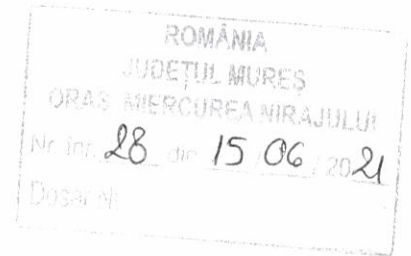 ROMÂNIA
JUDEȚUL MUREȘ
ORAȘ MIERCUREA NIRAJULUI
Nr. înr. 28 din 15 / 06 / 2021
Dosar Nr.